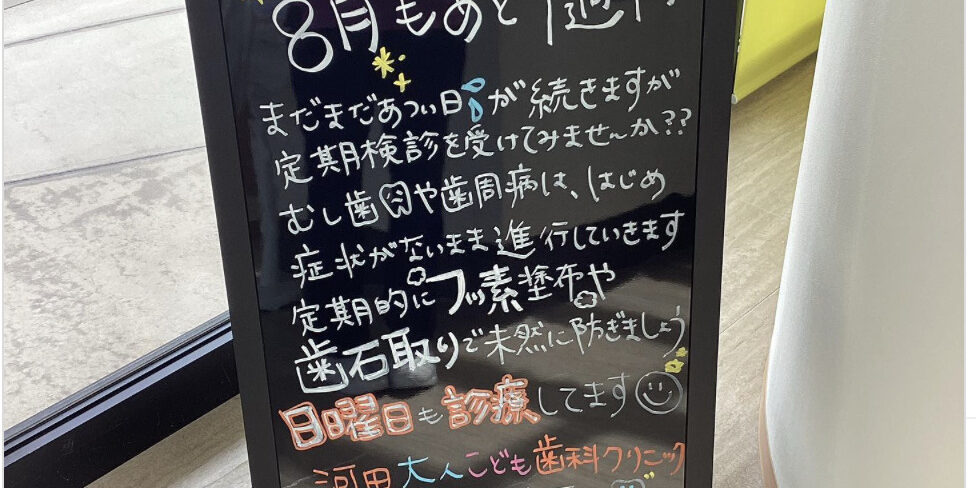 8月もあと1週間
まだまだあつい日が続きますが
定期検診を受けてみませんか??
むし歯や歯周病は、はじめ
症状がないまま進行していきます
定期的にフッ素塗布や
歯石取りで未然に防ぎましょう
日曜日も診療してます
河田大人こども歯科クリニック